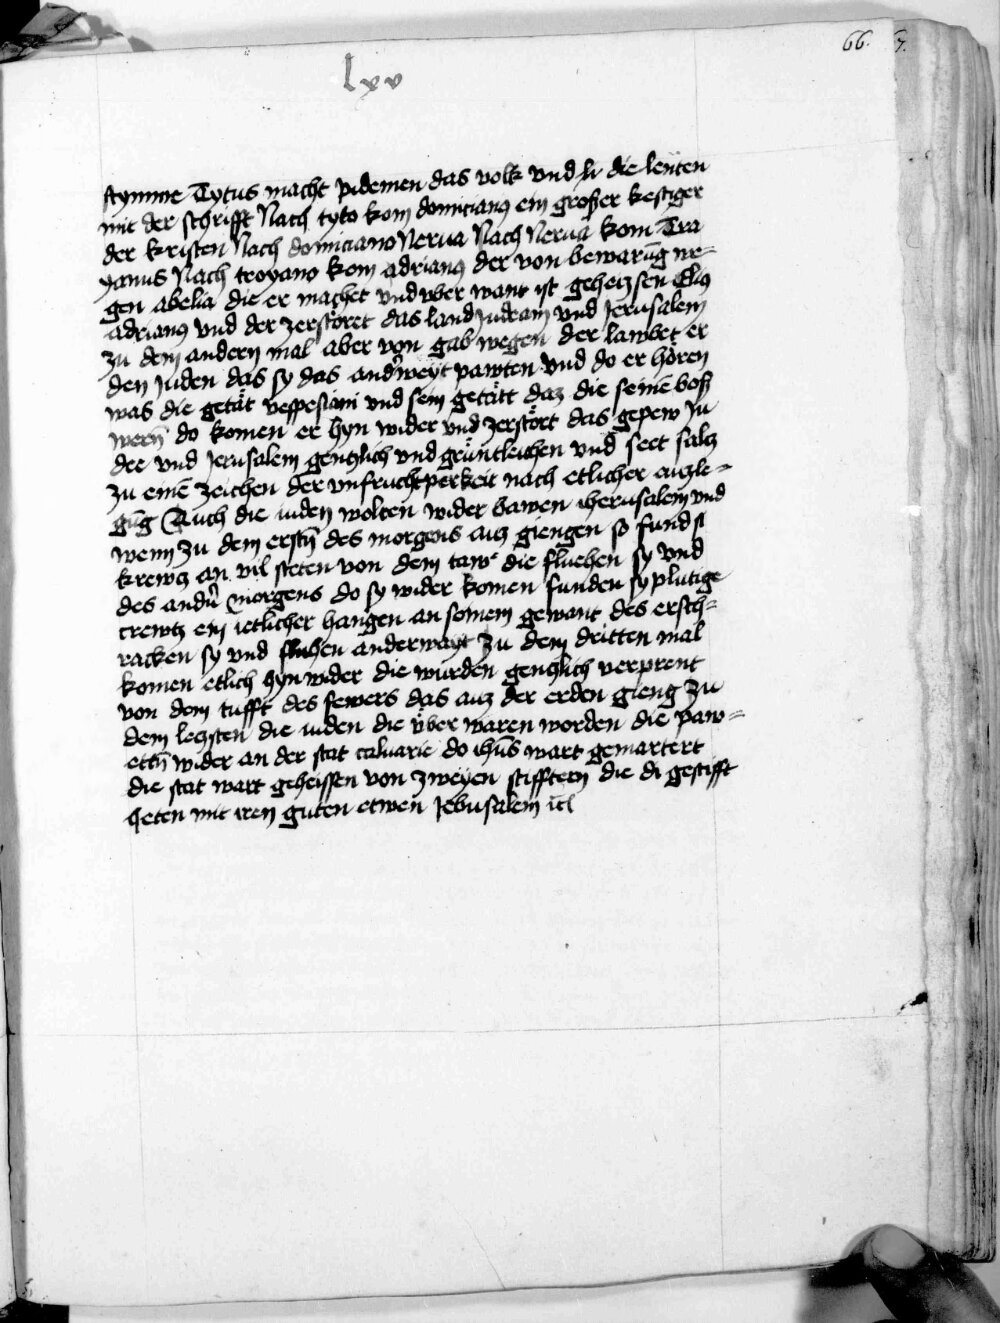 66. 67.
lxv
stymme Tytus macht pidemen das volk vnd li die leuten
mit der schrifft Nach tyto kom domicianus ein großer kestiger
der kristen Nach domiciano Nerua Nach Nerua kom Tra
yanus Nach troyano kom adrianus der von bewarūg we-
gen abelia die er machet vnd vber want ist geheizsen Elius
adrianus vnd der zerstöret das land Judeam vnd Jerusalem
zu dem andern mal aber von gab wegen der lawbet er
den Juden das sy das anderweyt pawten vnd do er hören
was die getät vespesiani vnd sein getätt daz die seinē boß
wern̄ do komen er hyn wider vnd zerstört das gepew Ju
dee vnd Jerusalem gentzlich vnd gruntleichen vnd seet saltz
zu einē zeichen der vnfruchtperkeit nach etlicher auzle-
gūg Auch die iuden wolten wider bawen iherusalem vnd
wenn zu dem ersten̄ des morgens auz giengen so fund si
krewtz an vil steten von dem taw die fluehen sy vnd
des andn̄ morgens do sy wider komen funden sy plutige
crewtz ein ietlicher hangen an seinem gewant des ersch-
racken sy vnd fluhen anderwayt zu dem dritten mal
komen etlich hyn wider die wurden gentzlich verprent
von dem tufft des fewers das auz der erden gieng zu
dem letzsten die iuden die vber waren worden die paw-
eten̄ wider an der stat caluarie do ihūs wart gemartert
die stat wart geheissen von zweyen stifftern die di gestifft
heten mit iren guten etwen Jebusalem icl